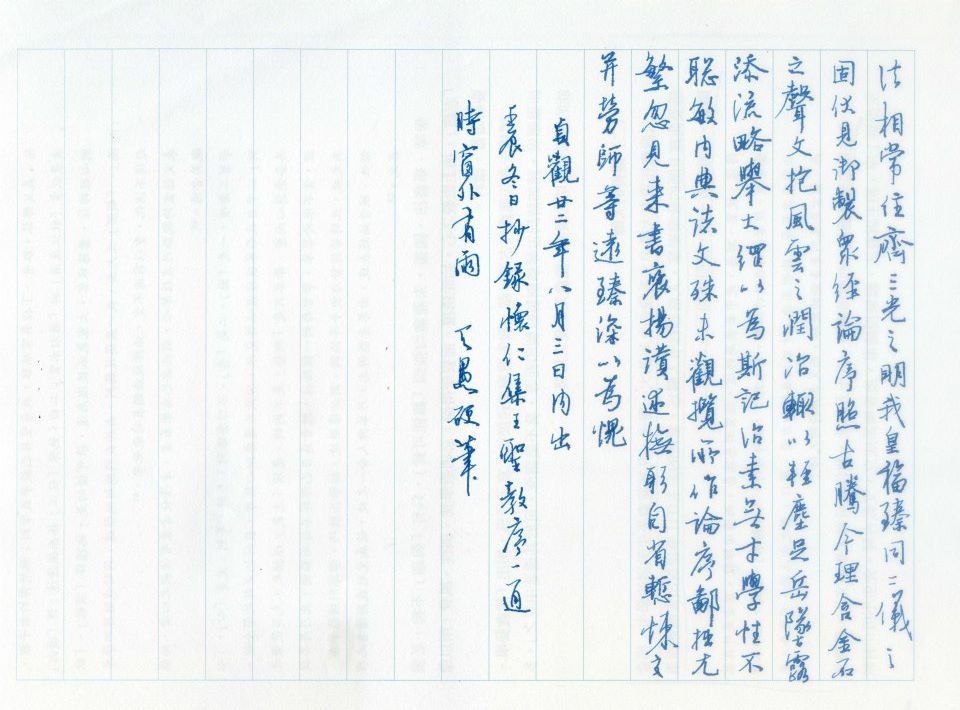 法相常住齊三光之明我皇福臻同二儀之
固伏見御製衆經論序照古騰今理含金石
之聲文抱風雲之潤治輒以輕塵足岳墜露
添流略舉大綱以為斯記治素無才學性不
聡敏内典諸文殊未觀攬所作論序鄙拙尤
繁忽見来書褒揚讃述撫躬自省慙悚交
并勞師等遠臻深以為愧
貞觀廿二年八月三日内出
冬日抄録懷仁集王聖教序一通
時窗外有雨 愚硬筆